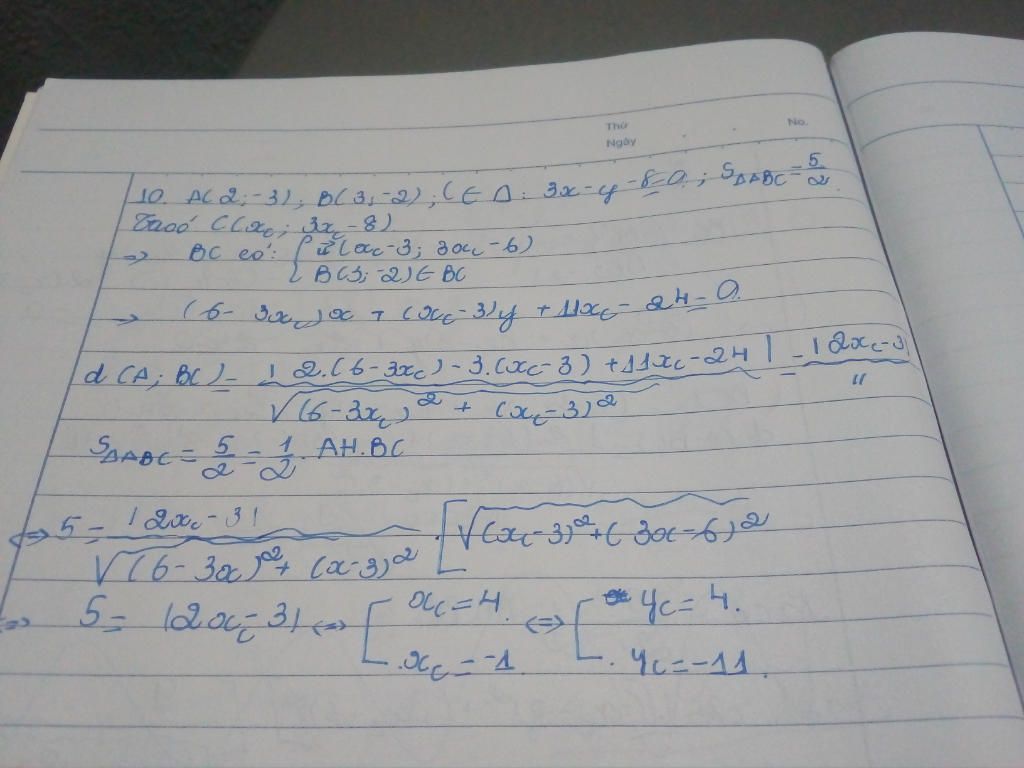 Thứ No.
Ngày
10. A(2; -3); B(3; -2); C ∈ Δ: 3x - y - 8 = 0; S_ΔABC = 5/2.
C(x_C; 3x_C - 8)
=> BC có: { u⃗(x_C - 3; 3x_C - 6)
B(3; -2) ∈ BC
=> (6 - 3x_C)x + (x_C - 3)y + 11x_C - 24 = 0.
d(A; BC) = |2.(6 - 3x_C) - 3.(x_C - 3) + 11x_C - 24| / √((6 - 3x_C)² + (x_C - 3)²) = |2x_C - 3| / "
S_ΔABC = 5/2 = 1/2 . AH.BC
<=> 5 = |2x_C - 3| / √((6 - 3x)² + (x - 3)²) . [√((x_C - 3)² + (3x - 6)²)
<=> 5 = |2x_C - 3| <=> [ x_C = 4. <=> [ y_C = 4.
x_C = -1. y_C = -11.